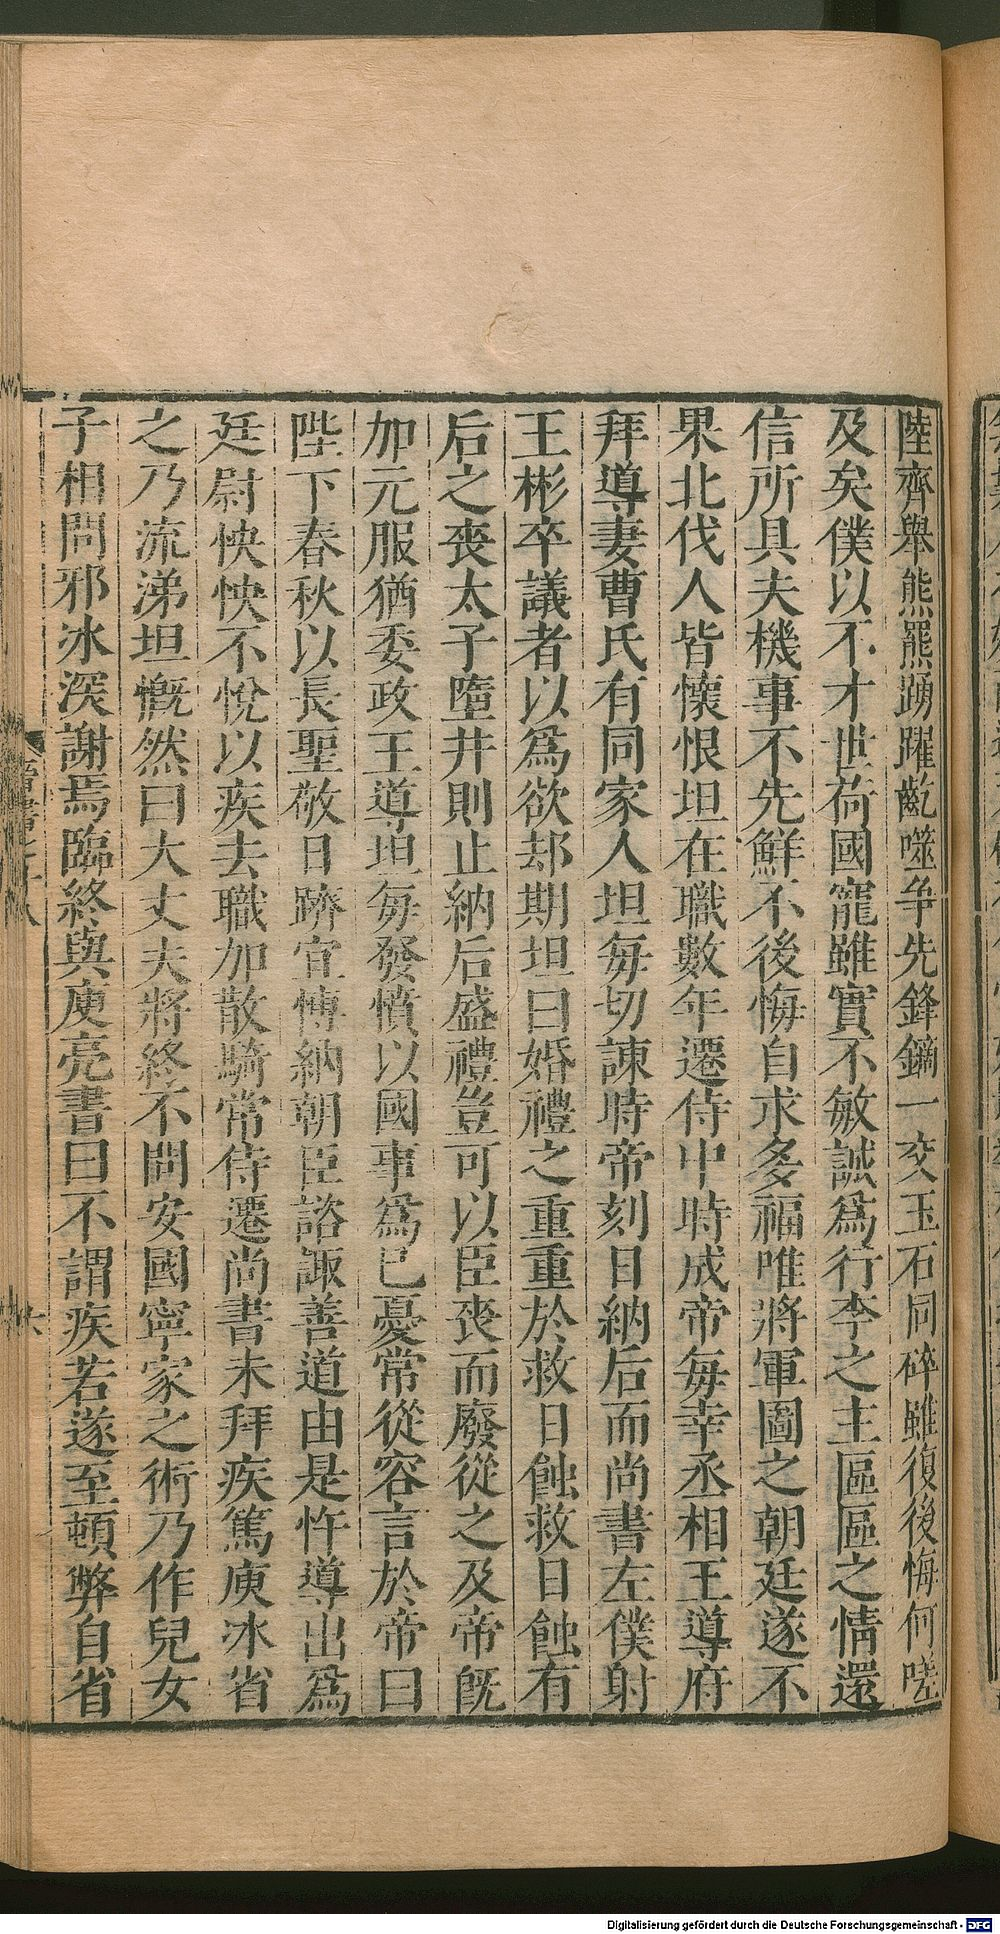 陸齊舉熊羆踴躍齕噬爭先鋒鏑一交玉石同碎雖復後悔何嗟
及矣僕以不才世荷國寵雖實不敏誠爲行李之主區區之情還
信所具夫機事不先鮮不後悔自求多福唯將軍圖之朝廷遂不
果北伐人皆懷恨坦在職數年遷侍中時成帝每幸丞相王導府
拜導妻曹氏有同家人坦每切諫時帝刻日納后而尚書左僕射
王彬卒議者以爲欲却期坦曰婚禮之重重於救日蝕救日蝕有
后之喪太子墮井則止納后盛禮豈可以臣喪而廢從之及帝旣
加元服猶委政王導坦每發憤以國事爲已憂常從容言於帝曰
陛下春秋以長聖敬日躋宜博納朝臣諮諏善道由是忤導出爲
廷尉怏怏不悅以疾去職加散騎常侍遷尚書未拜疾篤庾冰省
之乃流涕坦慨然曰大丈夫將終不問安國寧家之術乃作兒女
子相問邪冰深謝焉臨終與庾亮書曰不謂疾若遂至頓弊自省
Digitalisierung gefördert durch die Deutsche Forschungsgemeinschaft - DFG